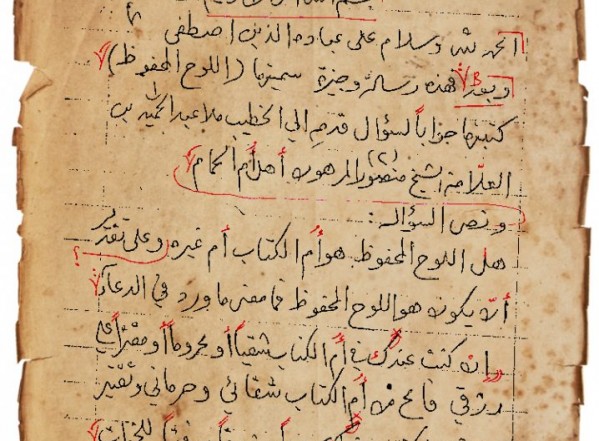 بسم الله الرحمن الرحيم
الحمد لله وسلام على عباده الذين اصطفى
وبعد فهذه رسالة وجيزة سميتها (اللوح المحفوظ)
كتبتها جواباً لسؤال قدم إلي الخطيب ملا عبد الحميد بن
العلامة الشيخ منصور المرهون أهل أم الحمام
(٢)
ونص السؤال:
هل اللوح المحفوظ هو أم الكتاب أم غيره وعلى تقدير
أن يكون هو اللوح المحفوظ فما معنى ما ورد في الدعاء
إن كنت عندك في أم الكتاب شقياً أو محروماً أو مقتراً علي
رزقي فامح من أم الكتاب شقائي وحرماني وتقتير